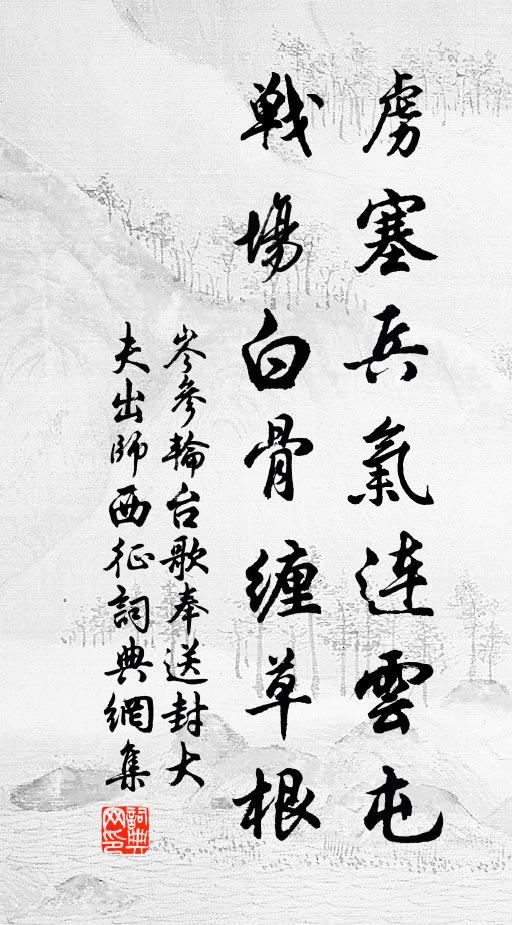 虜塞兵氣連雲屯
戰場白骨纏草根
岑參輪台歌奉送封大
夫出師西征詞典網集
詞典
网印